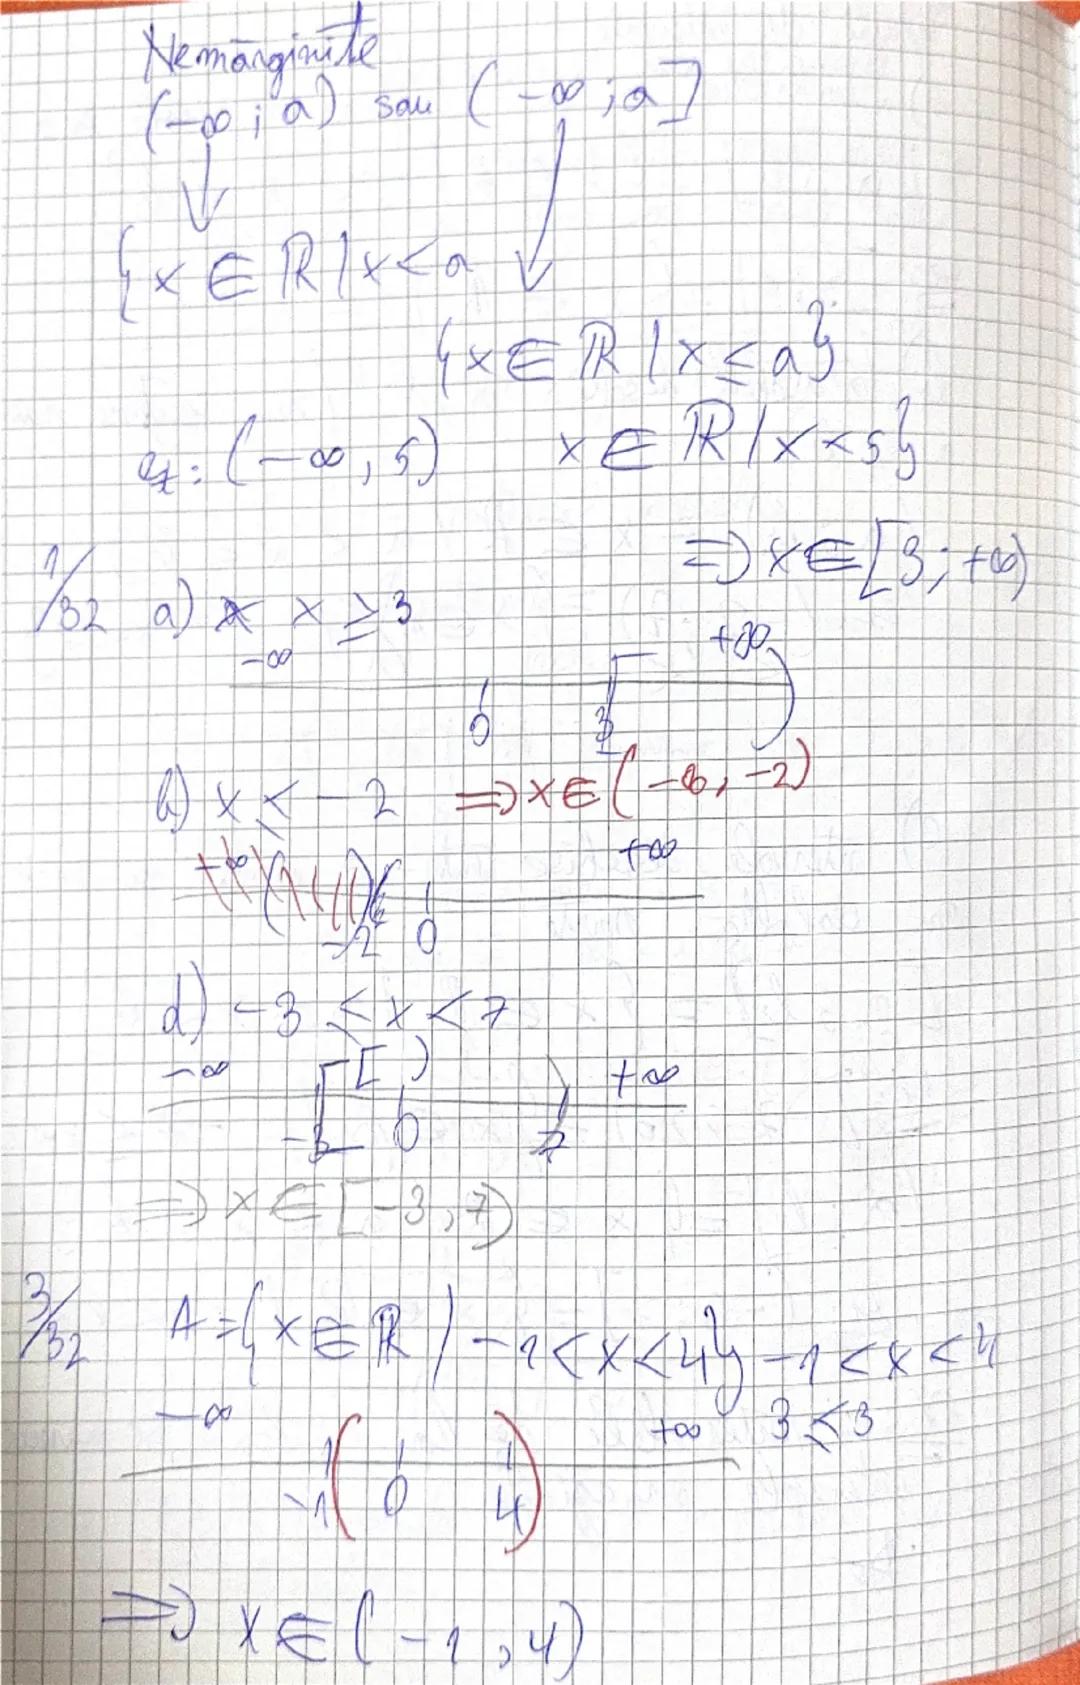 Nemărginite
(-∞; a) sau (-∞; a]
{x ∈ ℝ | x < a
{x ∈ ℝ | x ≤ a}
ex: (-∞, 5) x ∈ ℝ | x < 5}
⇒ x ∈ [3; +∞)
1/32 a) x ≥ 3
-∞ +∞
0 3
b) x < -2 ⇒ x ∈ (-∞, -2)
+∞
-2 0
d) -3 ≤ x < 7
[ )
-∞ +∞
-3 0 7
⇒ x ∈ [-3, 7)
3/32 A = {x ∈ ℝ | -1 < x < 4} -1 < x < 4
-∞ +∞ 3 ≤ 3
-1 0 4
⇒ x ∈ (-1, 4)